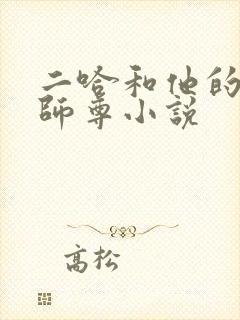 二哈和他的
師尊小説
高松